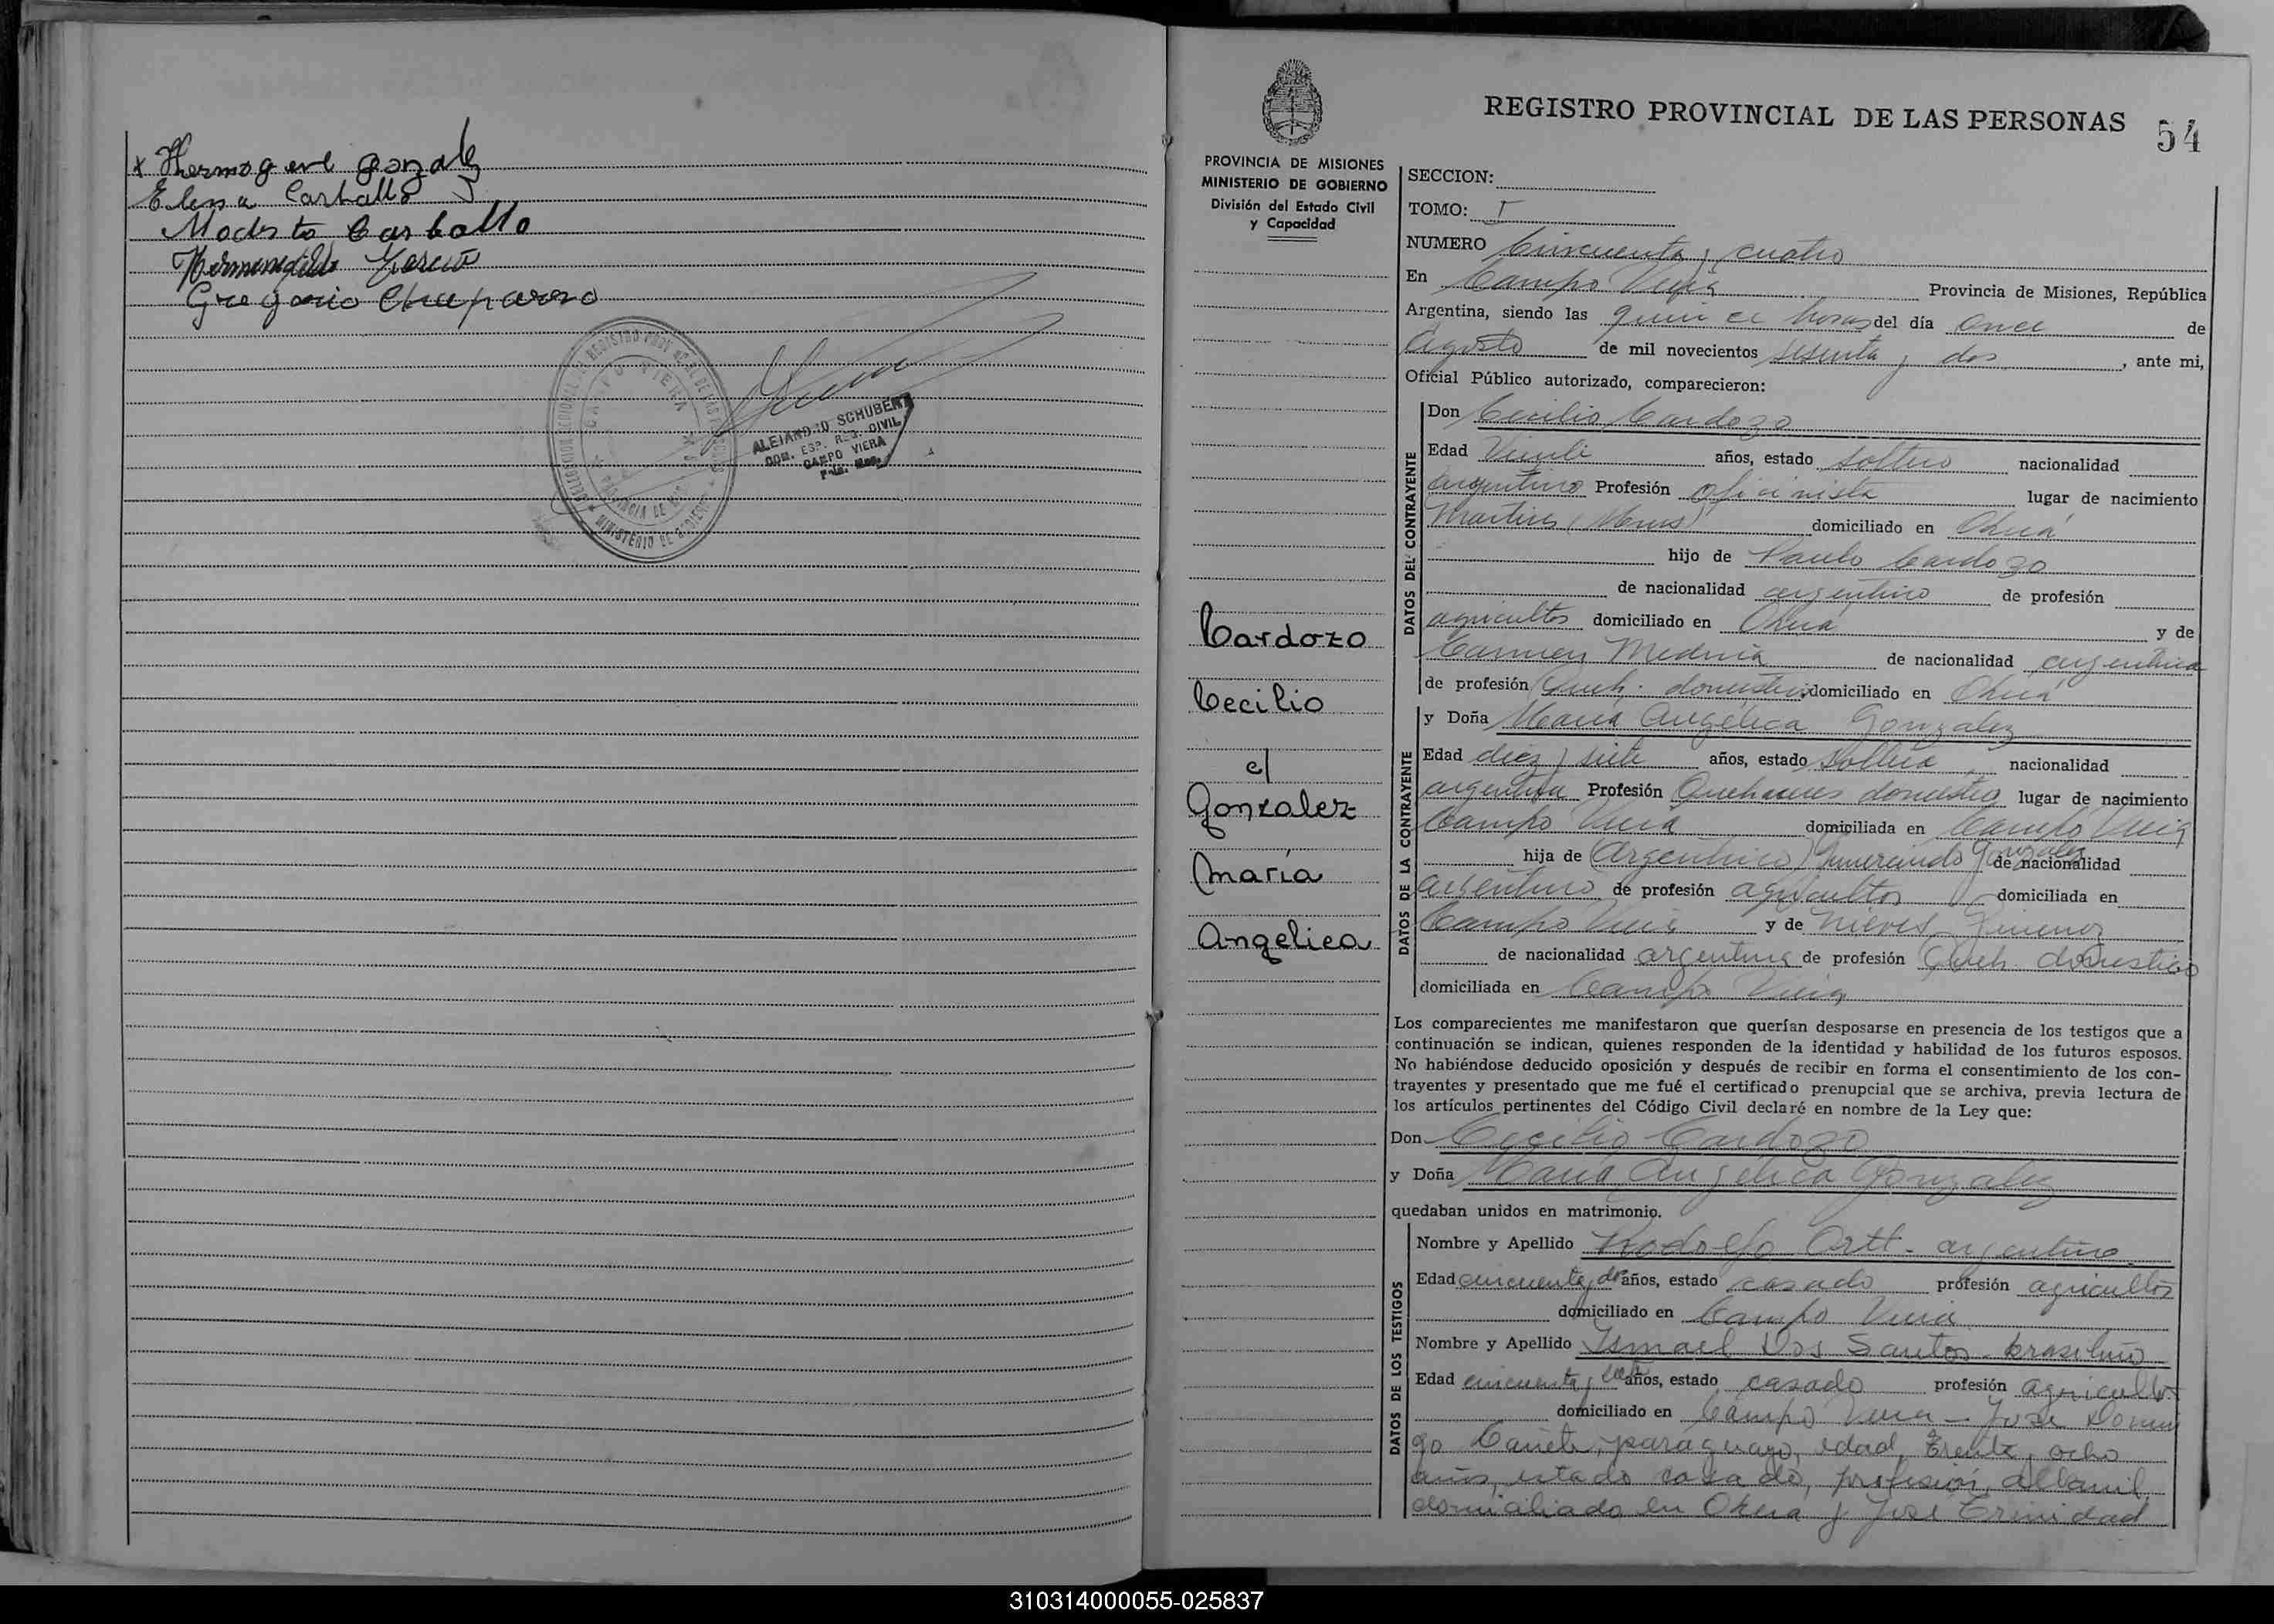 x Hermogene Gonzalez
Elena Carballo
Modesto Carballo
Hermenegildo
Gregorio Chaparro
ALEJANDRO SCHUBERT
REG. CIVIL
CAMPO VIERA
REGISTRO PROVINCIAL DE LAS PERSONAS
54
PROVINCIA DE MISIONES
MINISTERIO DE GOBIERNO
División del Estado Civil
y Capacidad
Cardozo
Cecilio
c/
Gonzalez
María
Angelica
SECCION:
TOMO: I
NUMERO Cincuenta y cuatro
En Campo Viera Provincia de Misiones, República
Argentina, siendo las quince horas del día once de
Agosto de mil novecientos sesenta y dos, ante mi,
Oficial Público autorizado, comparecieron:
DATOS DEL CONTRAYENTE
Don Cecilio Cardozo
Edad Veinte años, estado soltero nacionalidad
argentino Profesión oficinista lugar de nacimiento
Martires (Mnes) domiciliado en Oberá
hijo de Paulo Cardozo
de nacionalidad argentino de profesión
agricultor domiciliado en Oberá y de
Carmen Medina de nacionalidad argentina
de profesión Queh. domesticos domiciliado en Oberá
DATOS DE LA CONTRAYENTE
y Doña María Angélica Gonzalez
Edad diez y siete años, estado soltera nacionalidad
argentina Profesión Quehaceres domestico lugar de nacimiento
Campo Viera domiciliada en Campo Viera
hija de (Argentino) Gumercindo Gonzalez de nacionalidad
argentino de profesión agricultor domiciliada en
Campo Viera y de Nieves Gimenez
de nacionalidad argentina de profesión Queh. domestico
domiciliada en Campo Viera
Los comparecientes me manifestaron que querían desposarse en presencia de los testigos que a
continuación se indican, quienes responden de la identidad y habilidad de los futuros esposos.
No habiéndose deducido oposición y después de recibir en forma el consentimiento de los con-
trayentes y presentado que me fué el certificado prenupcial que se archiva, previa lectura de
los artículos pertinentes del Código Civil declaré en nombre de la Ley que:
Don Cecilio Cardozo
y Doña María Angélica Gonzalez
quedaban unidos en matrimonio.
DATOS DE LOS TESTIGOS
Nombre y Apellido Rodolfo Ortt - argentino
Edad cincuenta y dos años, estado casado profesión agricultor
domiciliado en Campo Viera
Nombre y Apellido Ismael Dos Santos - brasileño
Edad cincuenta y años, estado casado profesión agricultor
domiciliado en Campo Viera - José Domin
go Cañete, paraguayo, edad treinta y ocho
años, estado casado, profesión albanil,
domiciliado en Obera y José Trinidad
310314000055-025837